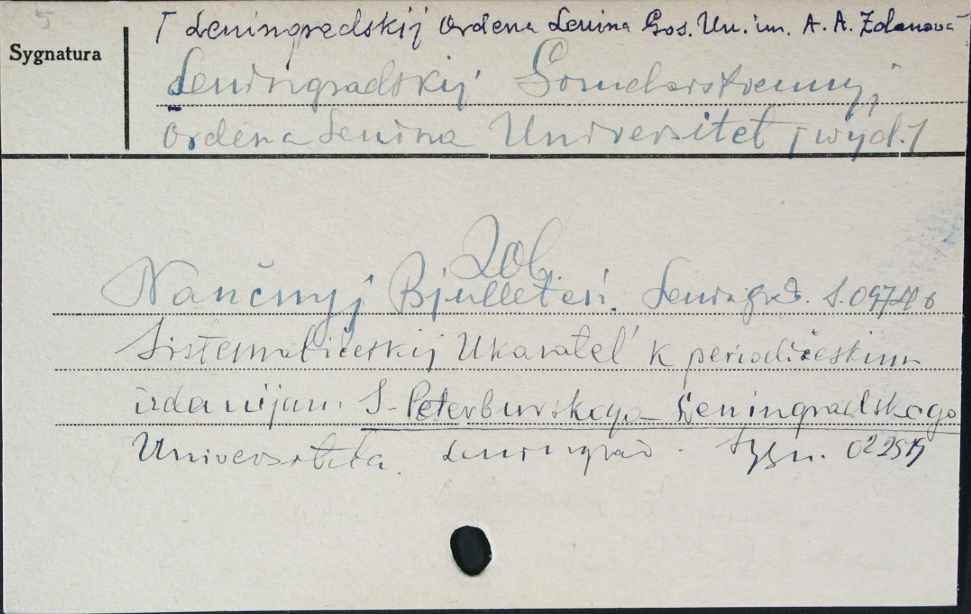 5
[ Leningradskij Ordena Lenina Gos. Un. im. A. A. Ždanova
Sygnatura
Leningradskij Gosudarstvennyj
Ordena Lenina Universitet [wyd.]
Zob.
Naučnyj Bjulleteń. Leningrad.
Sistematičeskij Ukazatel' k periodičeskim
izdanijam S-Peterburskogo-Leningradskogo
Universiteta. Leningrad. Sygn.